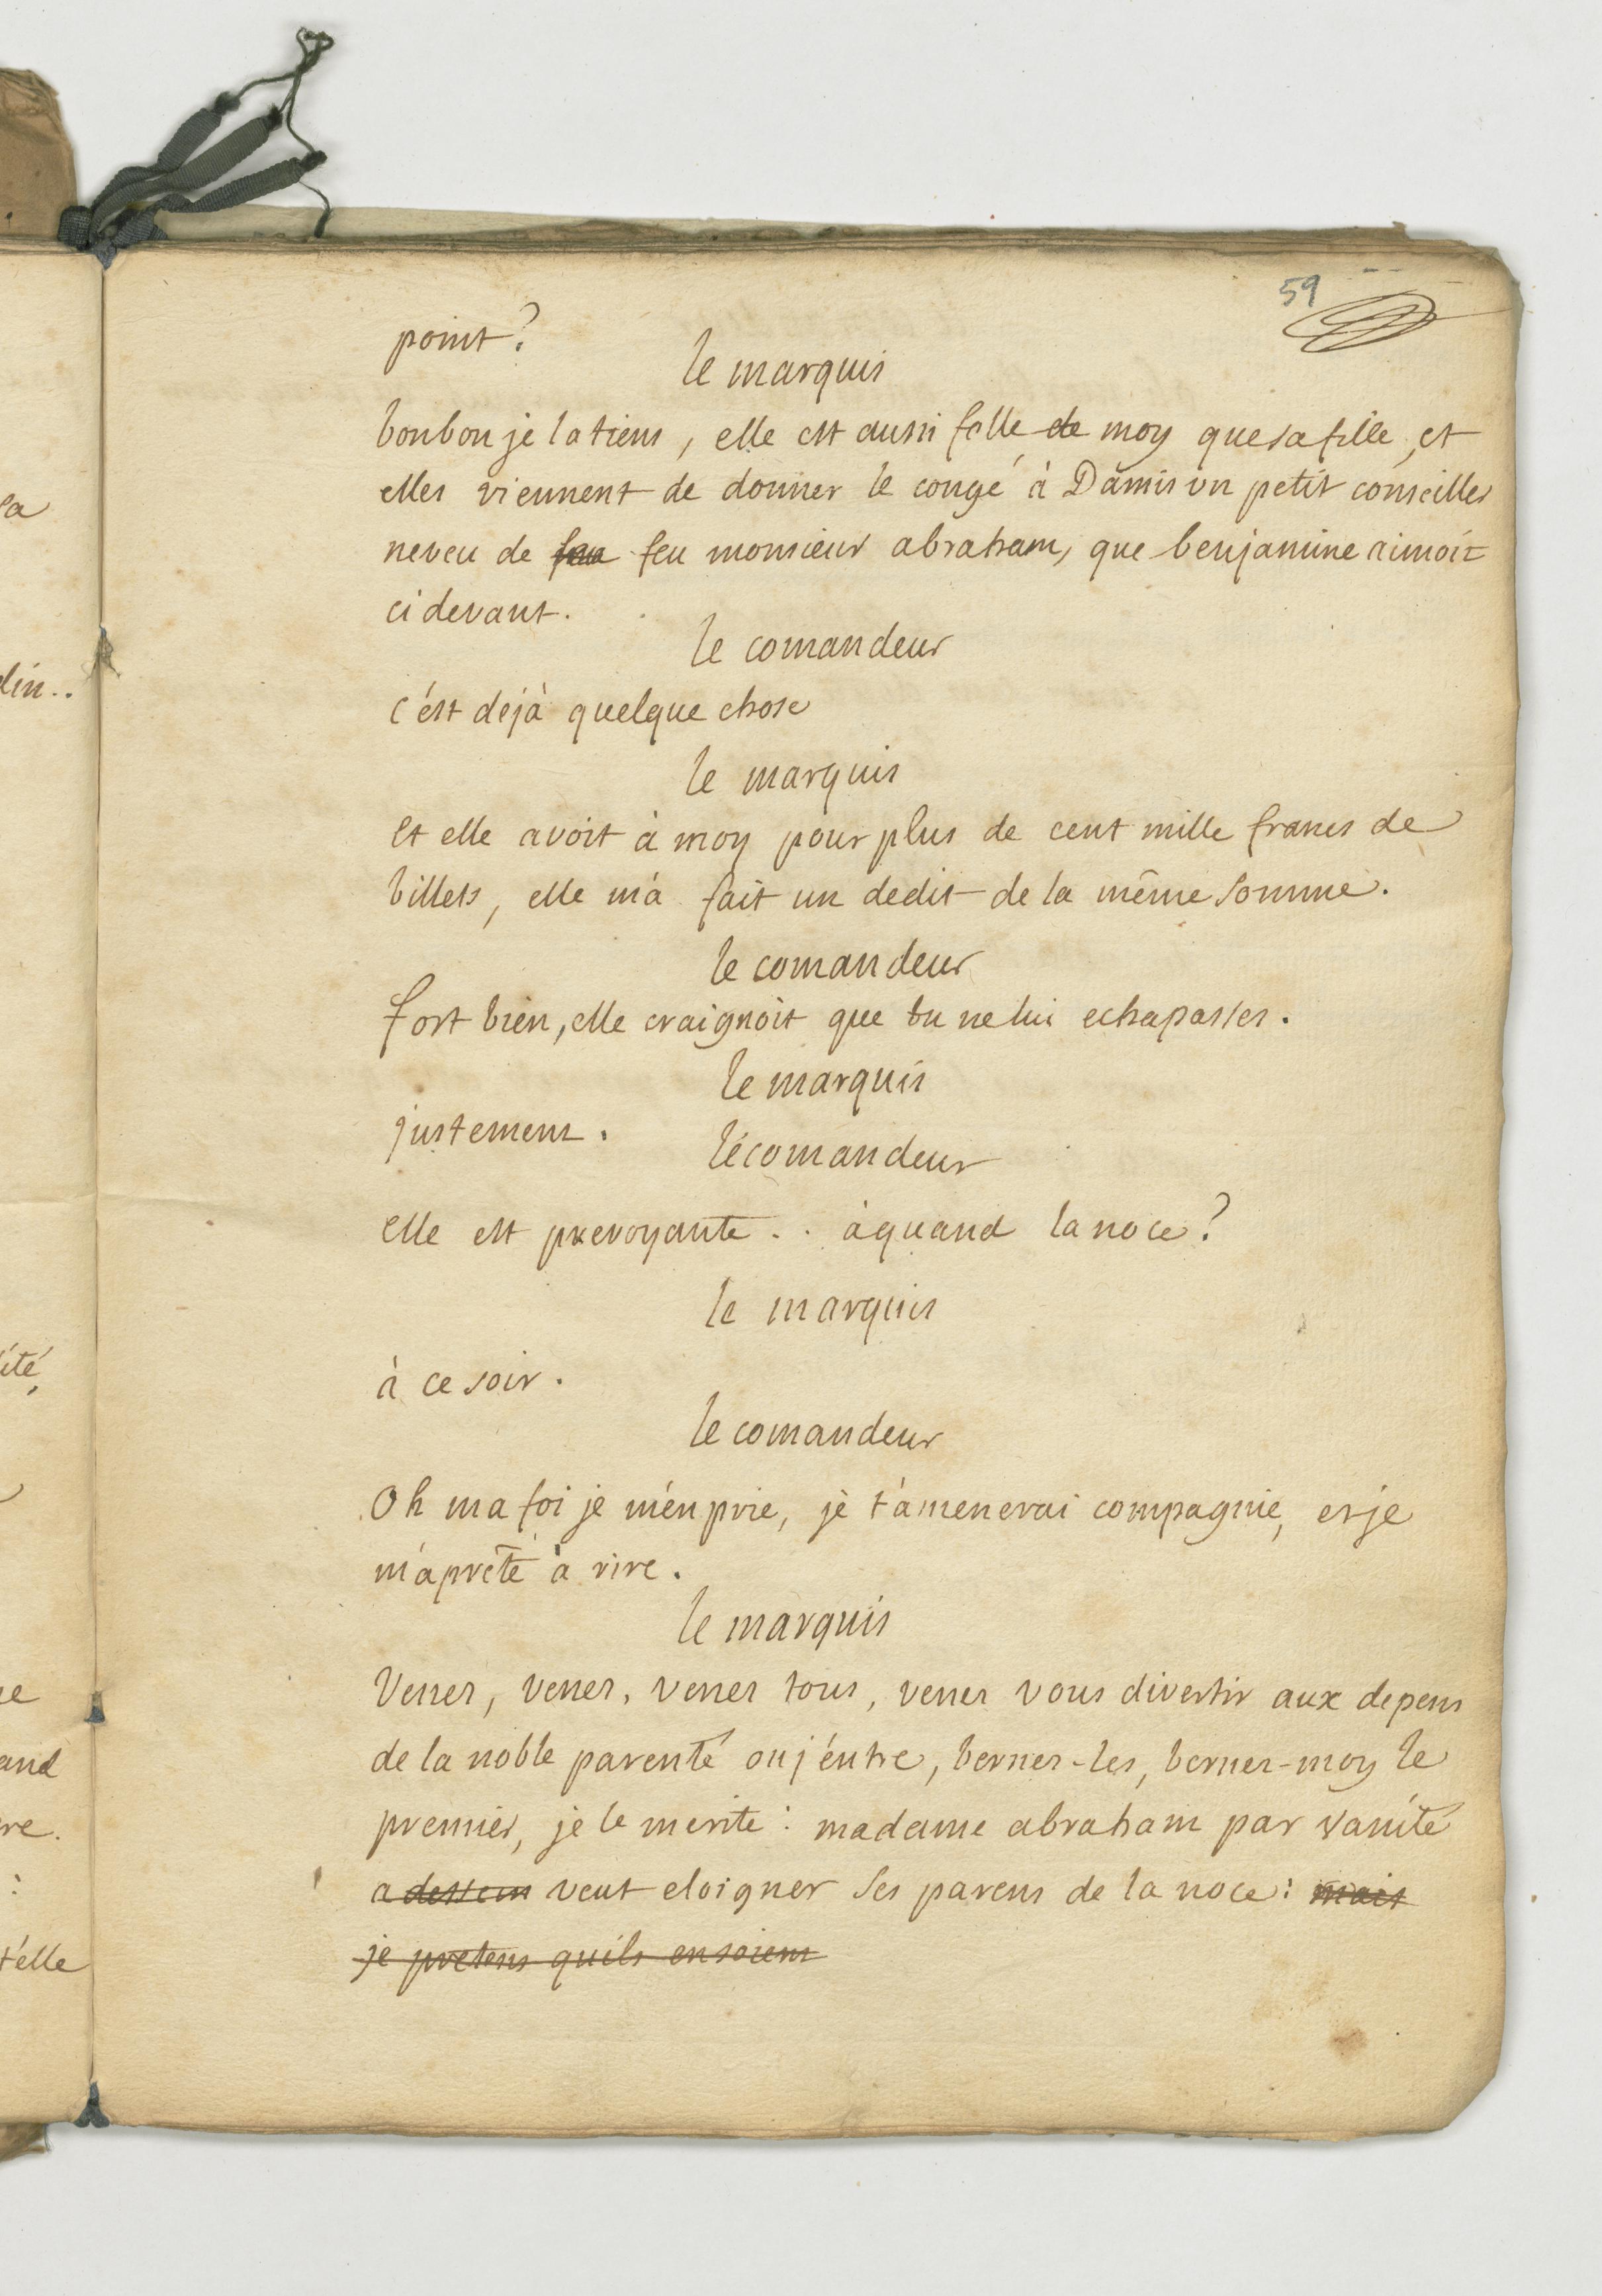 59
point?
le marquis
bonbon je la tiens, elle est aussi folle de moy que sa fille, et
elles viennent de donner le congé à Damis un petit conseiller
neveu de feu feu monsieur abraham, que benjamine aimoit
ci devant.
le comandeur
c'est déjà quelque chose
le marquis
Et elle avoit à moy pour plus de cent mille francs de
billets, elle m'a fait un dedit de la même somme.
le comandeur
fort bien, elle craignoit que tu ne lui echapasses.
le marquis
justement.
le comandeur
elle est prevoyante . . à quand la noce?
le marquis
à ce soir.
le comandeur
Oh ma foi je m'en prie, je t'amenerai compagnie, et je
m'aprête à rire.
le marquis
Venez, venez, venez tous, venez vous divertir aux depens
de la noble parenté ou j'entre, bernez-les, bernez-moy le
premier, je le merite : madame abraham par vanité
a dessein veut eloigner ses parens de la noce : mais
je pretens qu'ils en soient
la
lin..
ité,
and
re.
:
t'elle